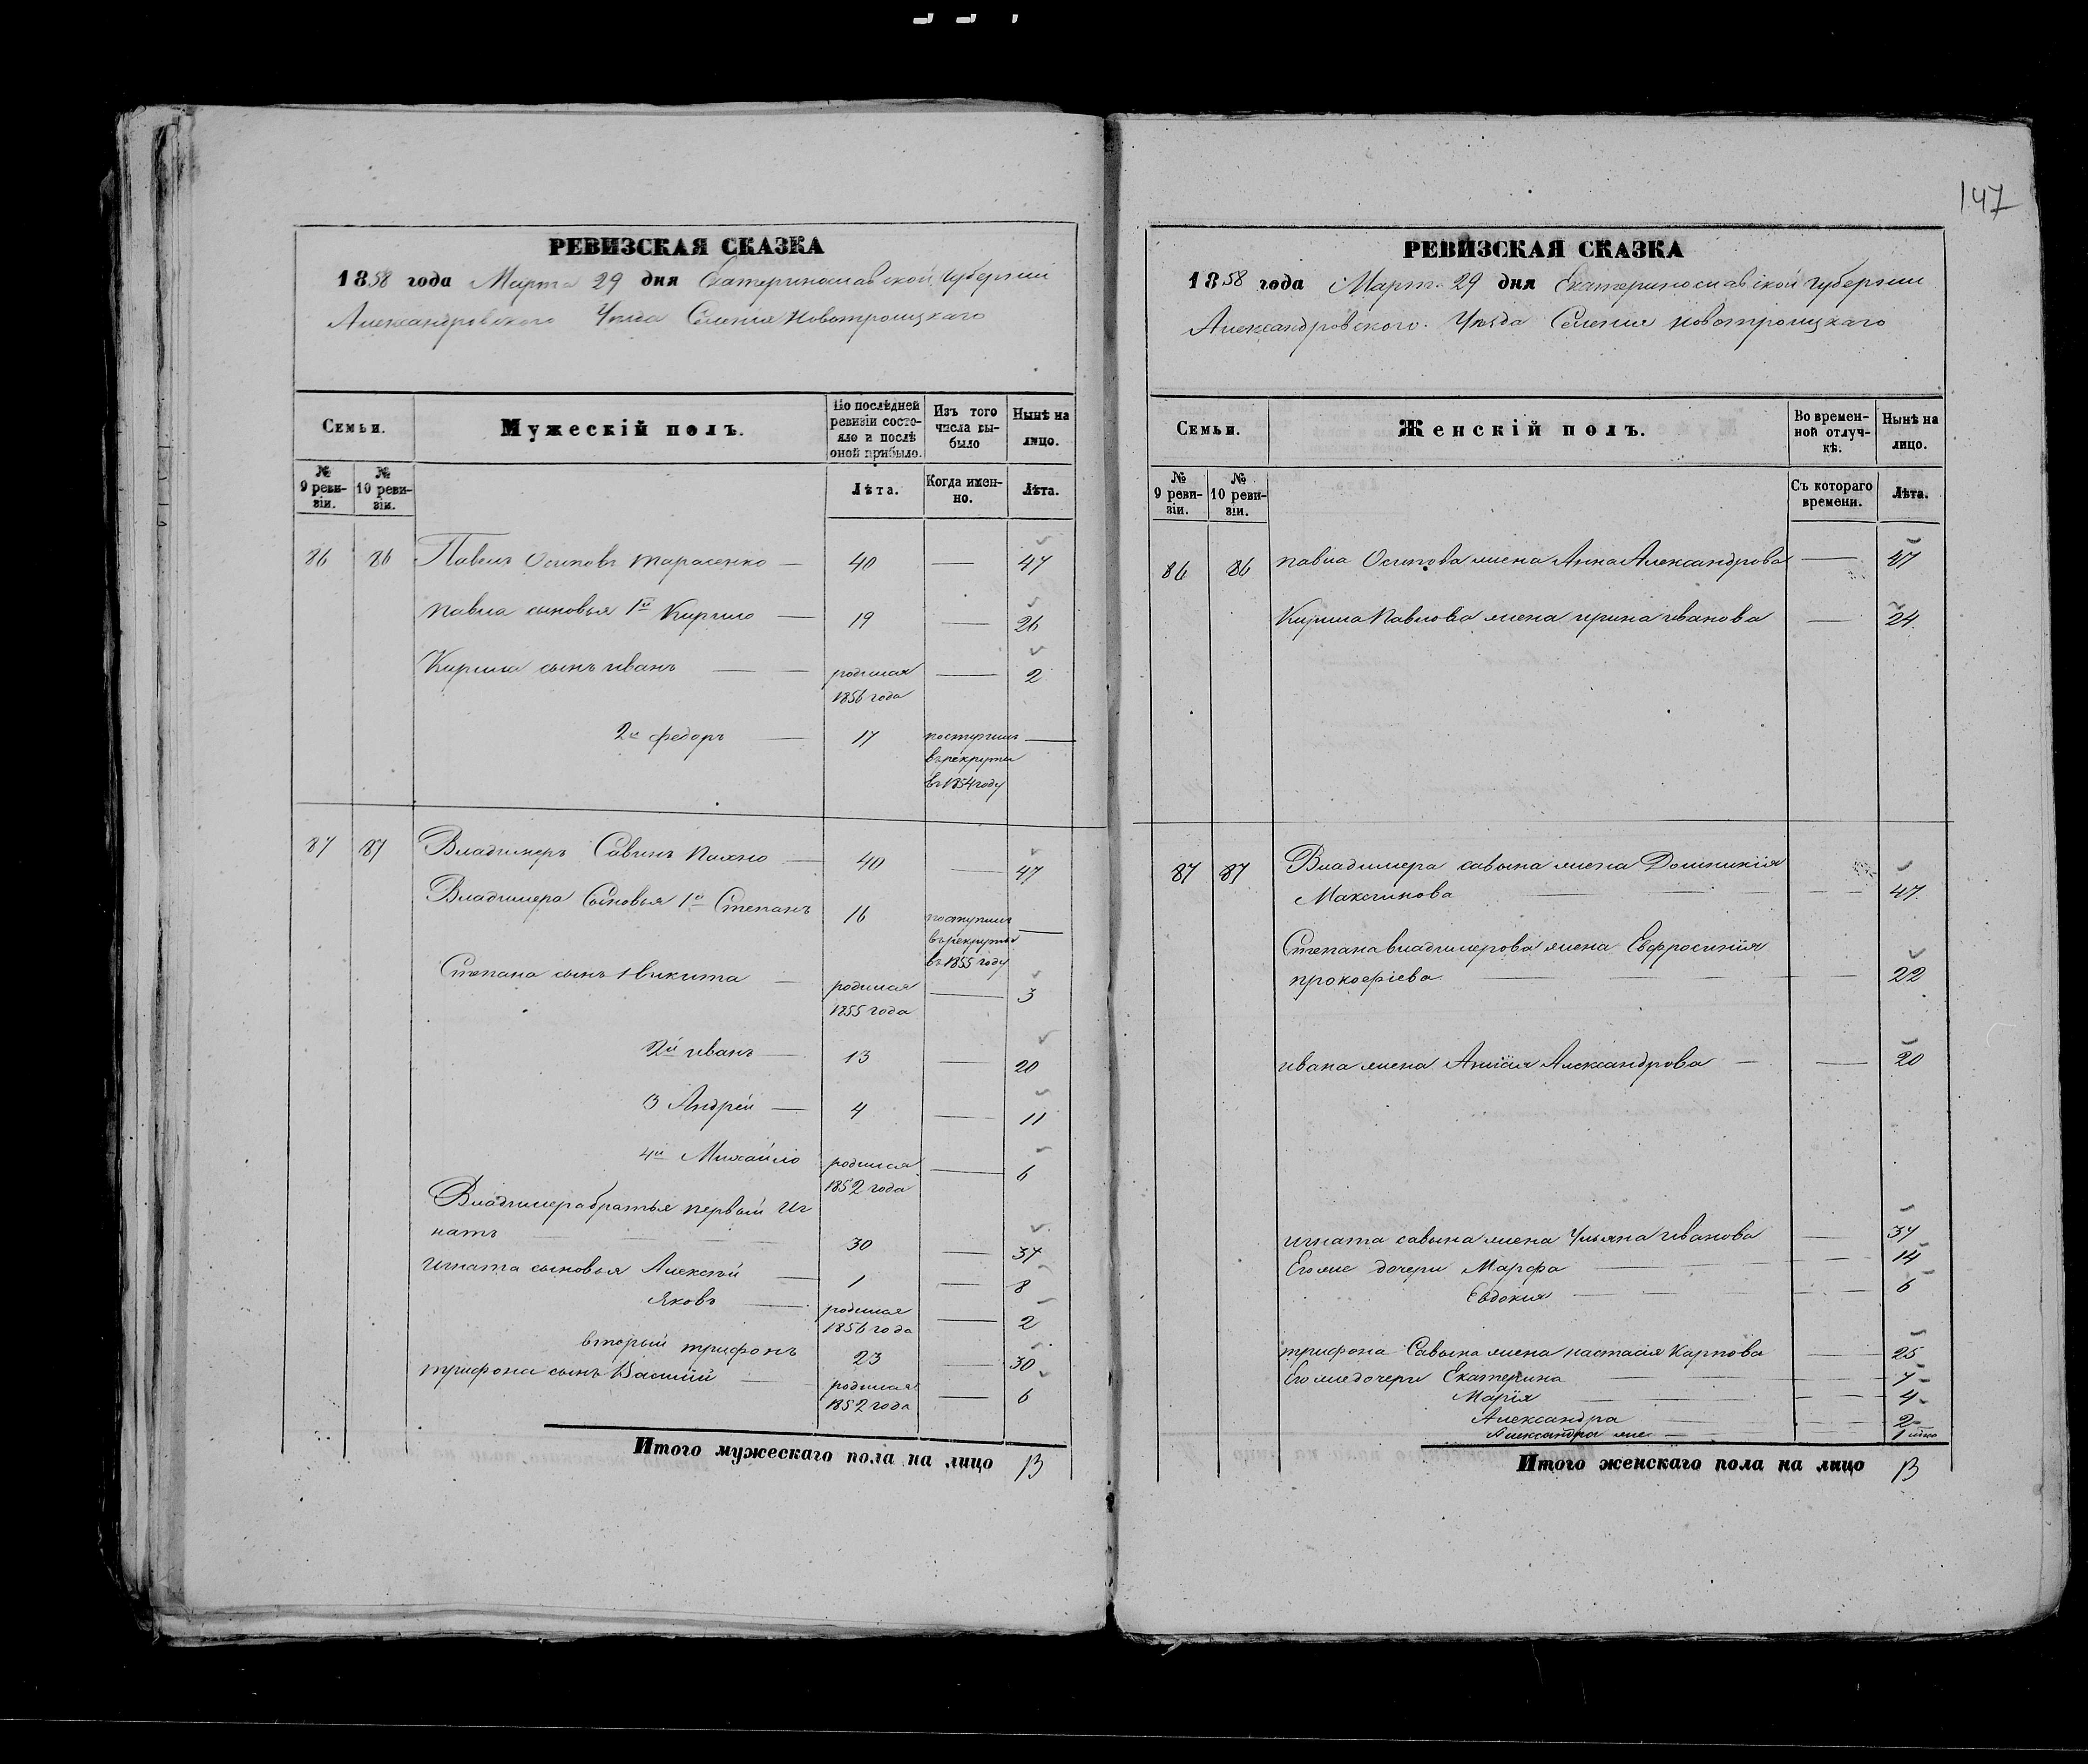 147
РЕВИЗСКАЯ СКАЗКА
1858 года Марта 29 дня Екатеринославской Губернии
Александровского Уезда Селения Новотроицкаго
Семьи.
Мужескій полъ.
По послѣдней ревизіи состояло и послѣ оной прибыло.
Изъ того числа выбыло
Нынѣ на лицо.
№ 9 ревизіи.
№ 10 ревизіи.
Лѣта.
Когда именно.
Лѣта.
86 86 Павелъ Осиповъ Тарасенко — 40 — 47
Павла сыновья 1й Кирило — 19 — 26
Кирила сынъ иванъ — родился 1856 года — 2
2й федоръ — 17 поступилъ въ рекруты въ 1854 году —
87 87 Владимеръ Савинъ Пахно — 40 — 47
Владимера Сыновья 1й Степанъ 16 поступилъ въ рекруты въ 1855 году —
Степана сынъ Никита — родился 1855 года — 3
2й иванъ — 13 — 20
3 Андрей — 4 — 11
4й Михайло родился 1852 года — 6
Владимера братья первый Иг
натъ — 30 — 37
Игната сыновья Алексѣй — 1 — 8
Яковъ — родился 1856 года — 2
вторый трифонъ 23 — 30
трифона сынъ Василій — родился 1852 года — 6
Итого мужескаго пола на лицо 13
РЕВИЗСКАЯ СКАЗКА
1858 года Марта 29 дня Екатеринославской губернии
Александровского Уѣзда Селения новотроицкаго
Семьи.
Женскій полъ.
Во временной отлучкѣ.
Нынѣ на лицо.
№ 9 ревизіи.
№ 10 ревизіи.
Съ котораго времени.
Лѣта.
86 86 павла Осипова жена Анна Александрова — 47
Кирила Павлова жена ирина иванова — 24
87 87 Владимера савина жена Домникія
Максимова — 47
Степана владимерова жена Евфросинія
прокофіева — 22
ивана жена Александрова — 20
игната савина жена Ульяна иванова — 37
Его же дочери Марфа — 14
Евдокия — 6
трифона Савина жена настасія Карпова — 25
Его же дочери Екатерина — 7
Марія — 4
Александра — 2
Александра же — 1
Итого женскаго пола на лицо 13